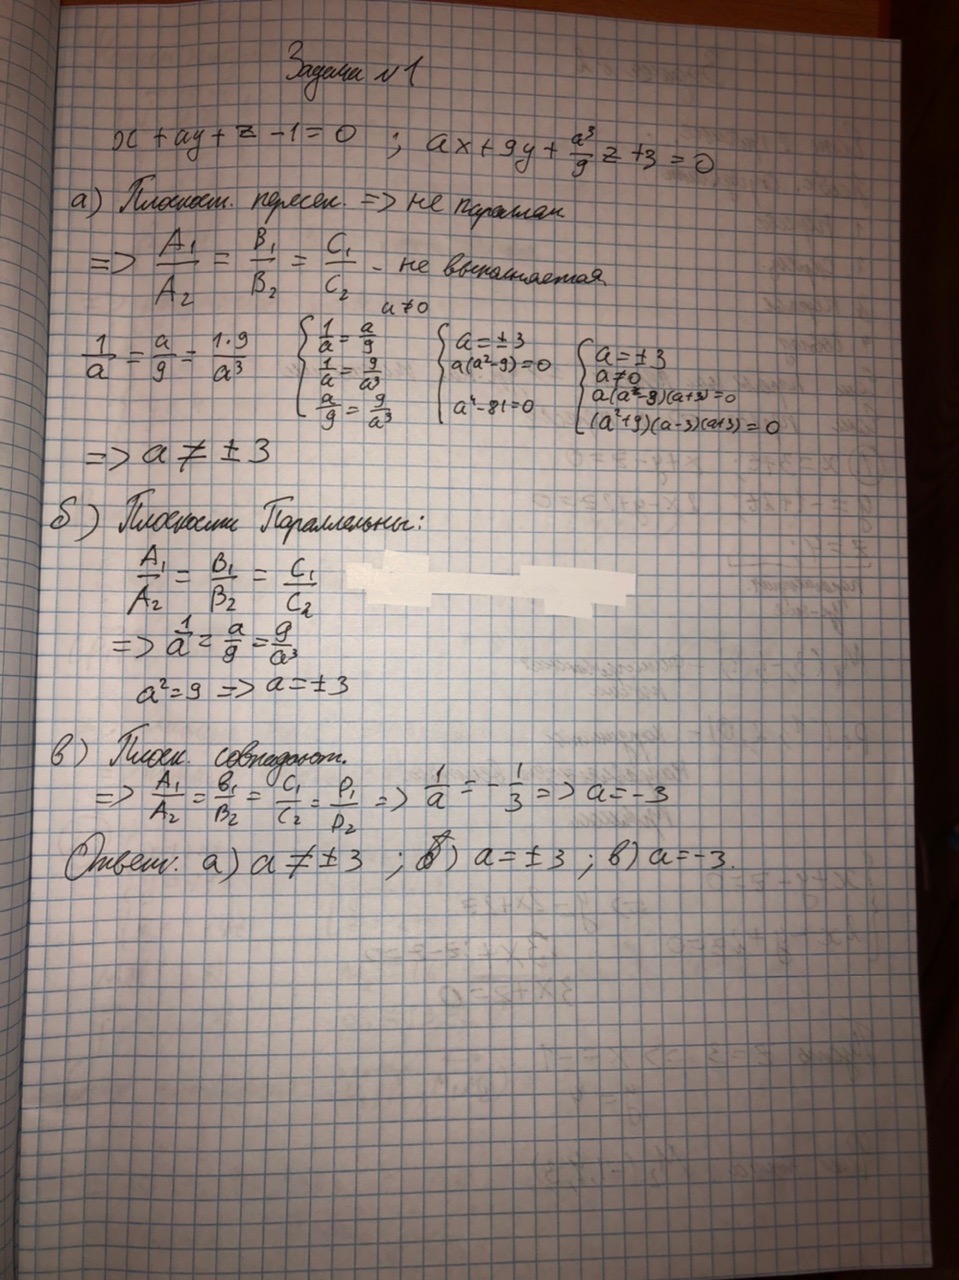 Задача №1
x + ay + z - 1 = 0 ; ax + 9y + a³/9 z + 3 = 0
а) Плоскост. пересек. => не параллел
=> A₁/A₂ = B₁/B₂ = C₁/C₂ - не выполняется
a ≠ 0
1/a = a/9 = 1·9/a³ { 1/a = a/9 { a = ±3 { a = ±3
1/a = 9/a³ a(a²-9) = 0 a ≠ 0
a/9 = 9/a³ a⁴ - 81 = 0 a(a²-9)(a+3) = 0
(a²+9)(a-3)(a+3) = 0
=> a ≠ ± 3
б) Плоскости Параллельны:
A₁/A₂ = B₁/B₂ = C₁/C₂
=> 1/a = a/9 = 9/a³
a² = 9 => a = ± 3
в) Плоск. совпадают.
=> A₁/A₂ = B₁/B₂ = C₁/C₂ = D₁/D₂ => 1/a = - 1/3 => a = -3
Ответ: а) a ≠ ± 3 ; б) a = ± 3 ; в) a = -3.